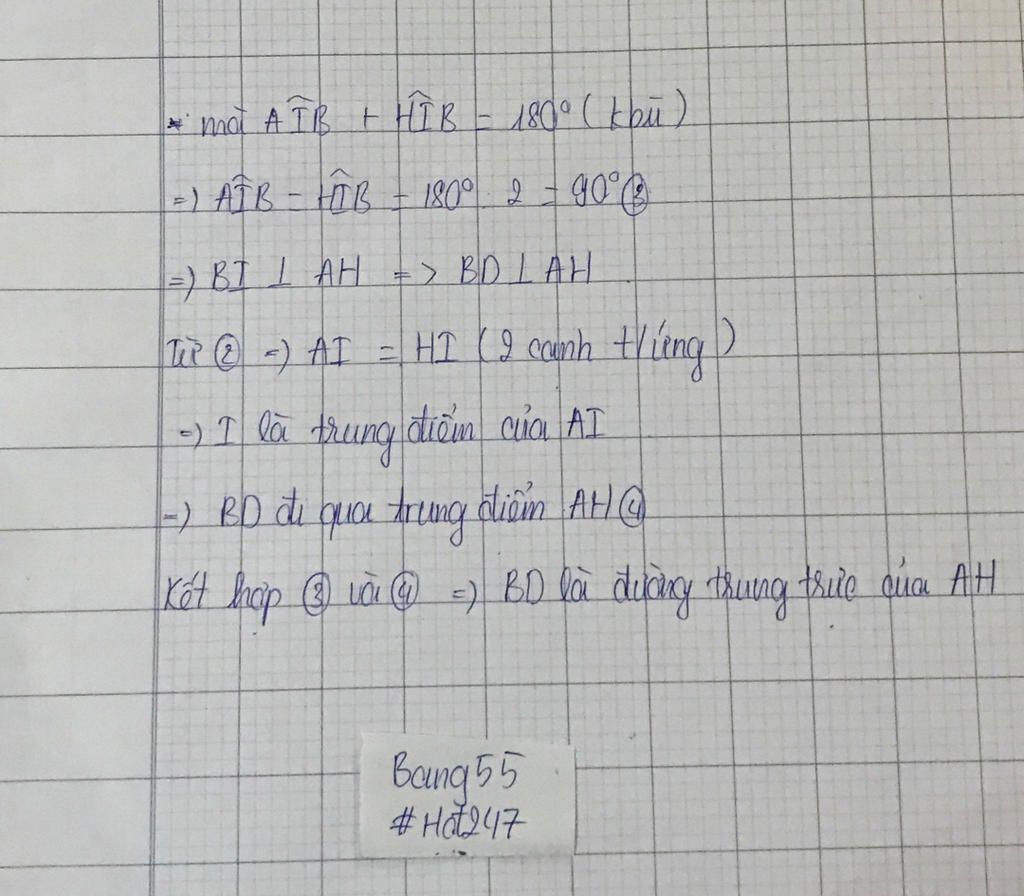 * mà AÎB + HÎB = 180° (kbù)
=) AÎB = HÎB = 180° : 2 = 90° ③
=) BI ⊥ AH => BD ⊥ AH
Từ ② =) AI = HI (2 cạnh t/ứng)
=) I là trung điểm của AI
=) BD đi qua trung điểm AH ④
Kết hợp ③ và ④ =) BD là đường trung trực của AH
Bang55
#Hoт247